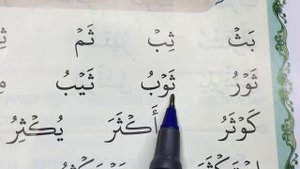 بَثْ ثِبْ ثَمْ
ثَوْرُ ثَوْبُ ثَيْبُ
كَوْثَرُ أَكْثَرَ يُكْثِرُ